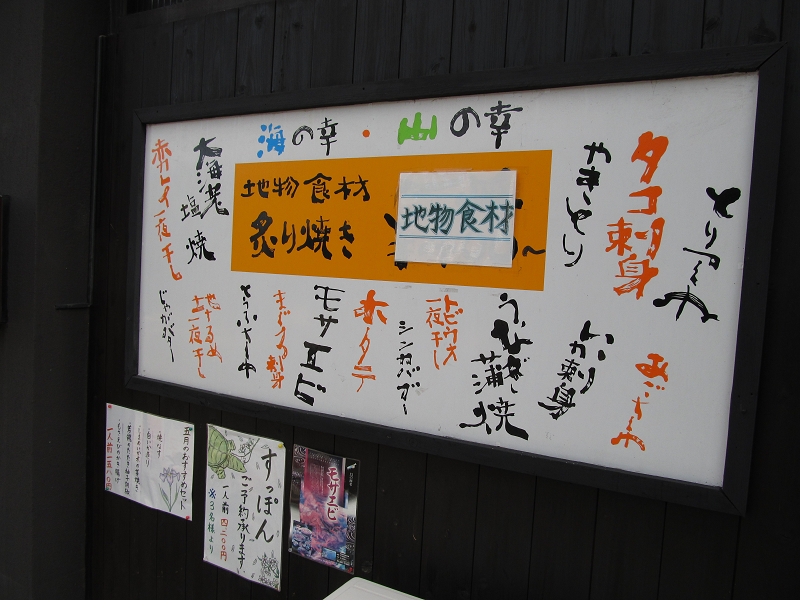 海の幸・山の幸
地物食材
炙り焼き
地物食材
とりアヘ中
タコ刺身
やきとり
大海老
塩焼
赤カレイ一夜干し
あごちーゎ
いか刺身
うなぎ
蒲焼
トビウオ
一夜干し
シシカバブー
ホタテ
モサエビ
まぐろ刺身
とうふちーゎ
地はるめ
一夜干し
じゃがバター
五月のおすすめセット
一人前一五八〇円
すっぽん
ご予約承ります
一人前 四二〇〇円
※3名様より
モサエビ